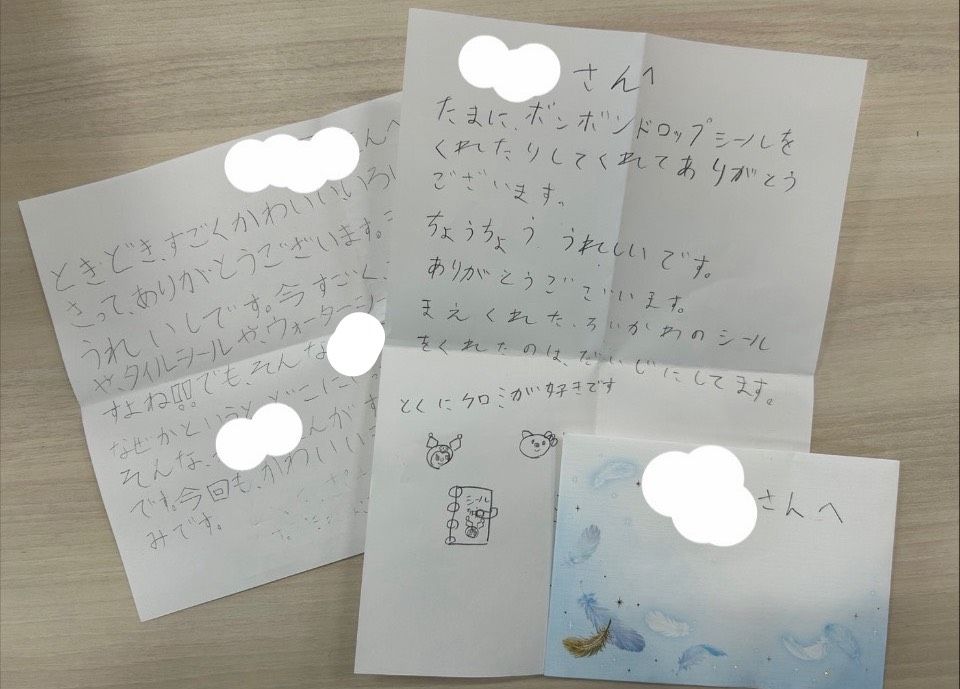 さんへ
たまに、ボンボンドロップシールを
くれたりしてくれてありがとう
ございます。
ちょうちょう、うれしいです。
ありがとうございます。
まえくれた、ろいかわのシール
をくれたのは、だいじにしてます。
とくにクロミが好きです
シール
さんへ
とき、どき、すごくかわいい、いろい
さって、ありがとうございます。
うれいしです。今すごく、
や、タイルシールや、ウォーターシー
すよね!!でも、そんな
なぜかというと、どこにい
そんな、んがす
です。今回も、かわいい
みです。
さんへ